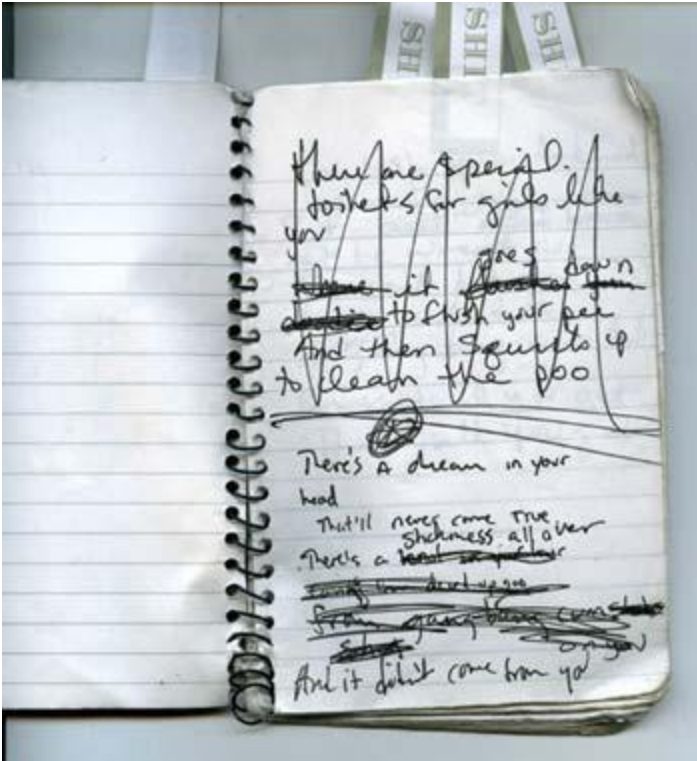 SHS
SHI
SH
there are special
toilets for girls like
you
goes down
it
to flush your pee
And then squirts up
to clean the poo
There's A dream in your
head
That'll never come True
Stickiness all over
There's a
from gangbang cum
on you
And it didn't come from you